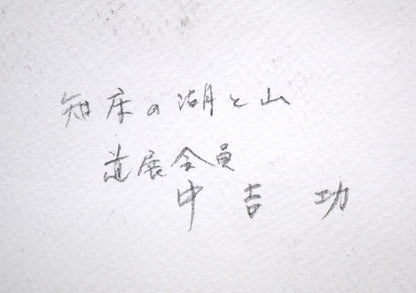 知床の湖と山
道展会員
中吉功